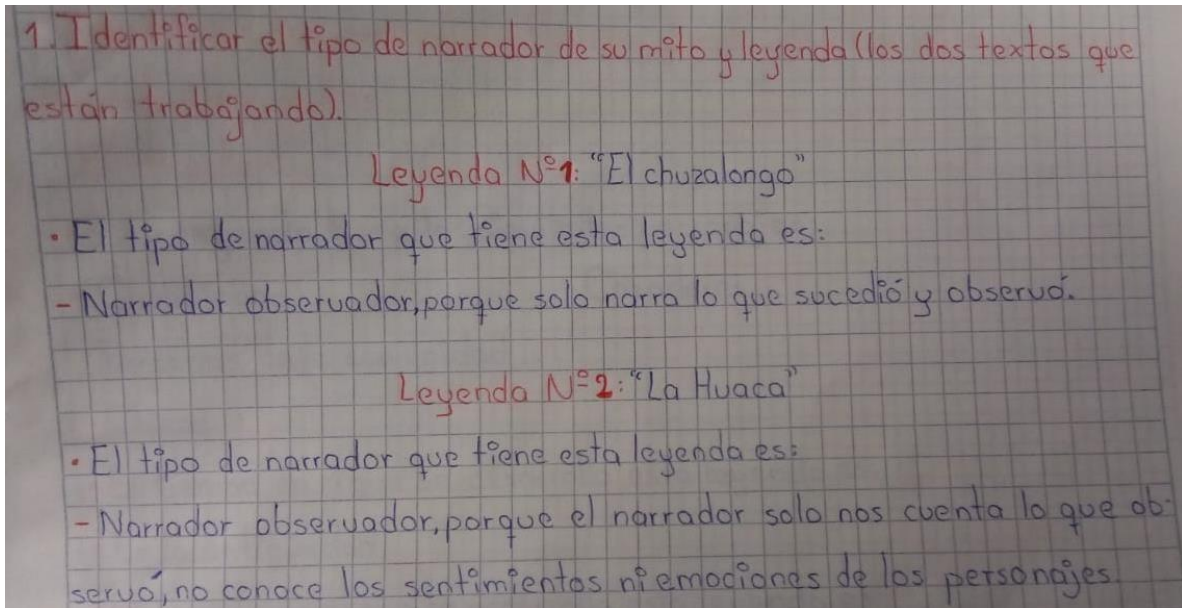 1. Identificar el tipo de narrador de su mito y leyenda (los dos textos que
están trabajando).
Leyenda N°1: "El chuzalongo"
• El tipo de narrador que tiene esta leyenda es:
- Narrador observador, porque solo narra lo que sucedió y observó.
Leyenda N°2: "La Huaca"
• El tipo de narrador que tiene esta leyenda es:
- Narrador observador, porque el narrador solo nos cuenta lo que ob-
servó, no conoce los sentimientos ni emociones de los personajes